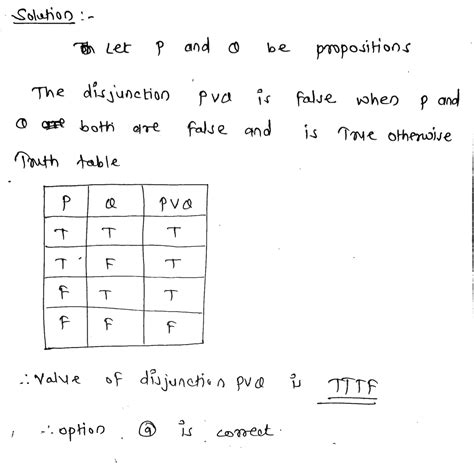 Solution :-
Let P and Q be propositions
The disjunction PVQ is false when P and
Q both are false and is True otherwise
Truth table
P Q PVQ
T T T
T F T
F T T
F F F
∴ Value of disjunction PVQ is TTTF
∴ option ⓐ is correct.